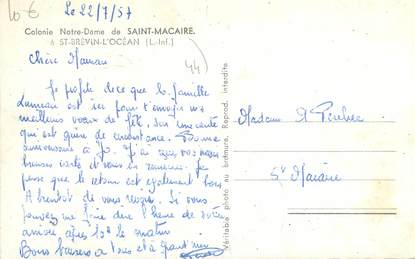 10 €
Le 22/7/57
Colonie Notre-Dame de SAINT-MACAIRE.
à ST-BRÉVIN-L'OCÉAN (L.-Inf.)
44
Chère Maman
Je profite de ce que la famille
est ici pour t'envoyer mes
meilleurs vœux de fête, sur une carte
qui est guère de circonstance. Bonne
anniversaire à
carte et vous en remercie. Je
pense que le retour est également bon
A bientôt de vous revoir. Si vous
pouvez me faire dire l'heure de votre
arrivée après le matin
Bons baisers à tous et à grand'mère
Véritable photo au bromure. Reprod. interdite
Madame
St Macaire